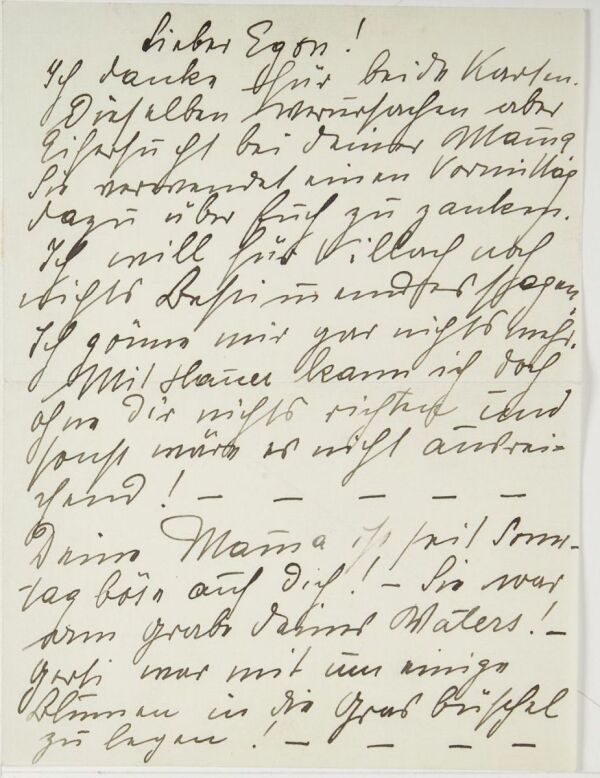 Lieber Egon!
Ich danke für beide Karten.
Dieselben verursachen aber
Eifersucht bei deiner Mama
Sie verwendet einen Vormittag
dazu über Euch zu zanken.
Ich will für Villach noch
nichts Bestimmendes sagen,
Ich gönne mir gar nichts mehr.
Mit Hauer kann ich doch
ohne dir nichts richten und
sonst wäre es nicht ausrei-
chend! — — — — —
Deine Mama ist seit Sonn-
tag böse auf dich! – Sie war
am Grabe deines Vaters! –
Gerti war mit um einige
Blumen in die Grasbüschel
zu legen! — — — —